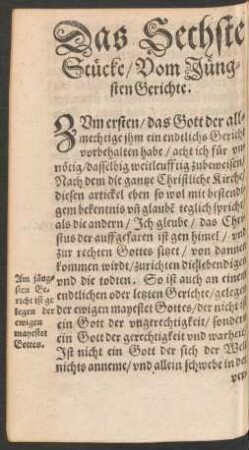 Das Sechste
Stücke / Vom Jüng-
sten Gerichte.
ZVm ersten / das Gott der all-
mechtige jhm ein endtlichs Gericht
vorbehalten habe / acht ich für vn-
nötig / dasselbig weitleufftig zubeweisen /
Nach dem die gantze Christliche Kirche /
diesen artickel eben so wol mit bestendi-
gem bekentnis vñ glaubẽ teglich spricht /
als die andern / Jch gleube / das Chri-
stus der auffgefaren ist gen himel / vnd
zur rechten Gottes sitzet / von dannen
kommen wirdt / zurichten die lebendigen
vnd die todten. So ist auch an einem
endtlichen oder letzten Gerichte / gelegen
der ewigen mayestet Gottes / der nicht ist
ein Gott der vngerechtigkeit / sondern
ein Gott der gerechtigkeit vnd warheit /
Jst nicht ein Gott der sich der Welt
nichts anneme / vnd allein schwebe in der
Am jüng-
sten Ge-
richt ist ge
legen der
ewigen
mayestet
Gottes.